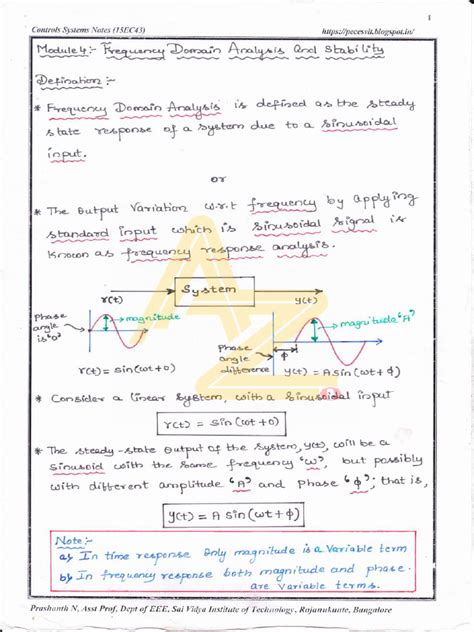 1
Controls Systems Notes (15EC43) https://pecesvit.blogspot.in/
Module 4:- Frequency Domain Analysis and Stability
Defination:-
* Frequency Domain Analysis is defined as the steady
state response of a system due to a sinusoidal
input.
or
* The Output Variation w.r.t frequency by applying
standard input which is sinusoidal signal is
known as frequency response analysis.
r(t) System y(t)
Phase angle is "0" magnitude
magnitude "A"
Phase angle difference ϕ
r(t) = sin(ωt+0) y(t) = A sin(ωt+ϕ)
* Consider a linear system, with a sinusoidal input
r(t) = sin(ωt+0)
* The steady-state output of the system, y(t), will be a
sinusoid with the same frequency "ω", but possibly
with different amplitude "A" and phase "ϕ"; that is,
y(t) = A sin(ωt+ϕ)
Note:-
a) In time response only magnitude is a variable term
b) In frequency response both magnitude and phase
are variable terms.
Prashanth N, Asst Prof, Dept of EEE, Sai Vidya Institute of Technology, Rajanukunte, Bangalore